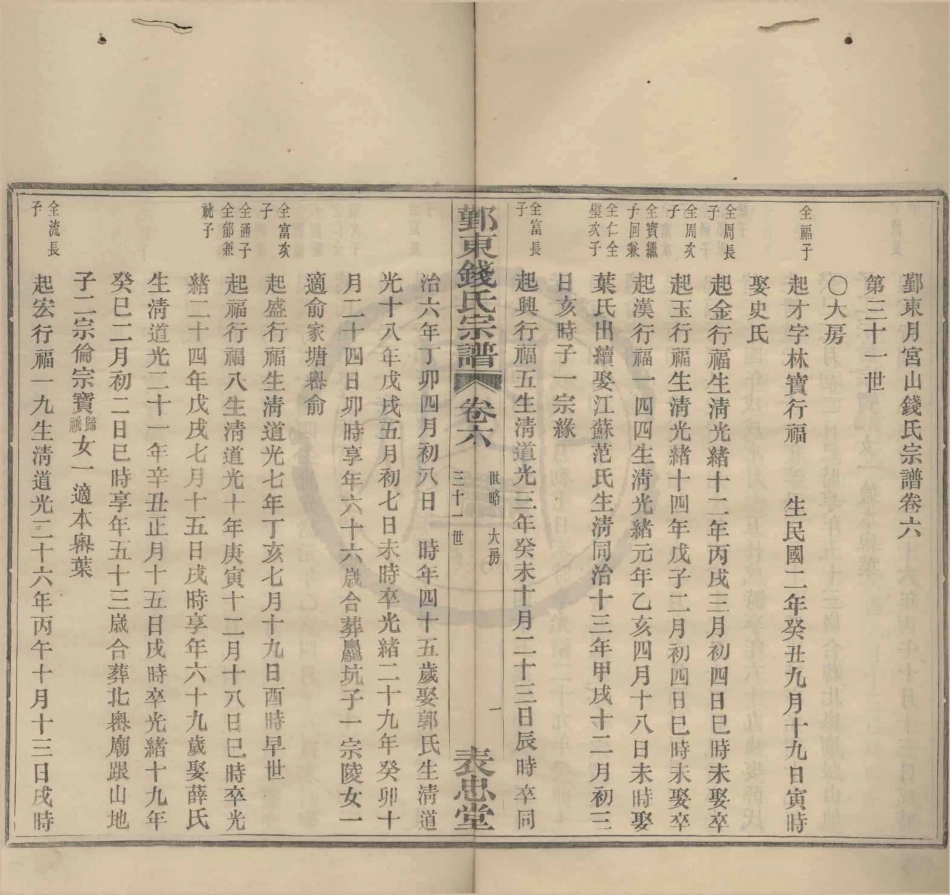 鄞東月宮山錢氏宗譜卷六
第三十一世
〇大房
全福子
起才字林寶行福　生民國二年癸丑九月十九日寅時
娶史氏
全周長子
起金行福生清光緒十二年丙戌三月初四日巳時未娶卒
全周次子
起玉行福生清光緒十四年戊子二月初四日巳時未娶卒
全寶繼子回兼
起漢行福一四四生清光緒元年乙亥四月十八日未時娶
全仁全璧次子
葉氏出續娶江蘇范氏生清同治十三年甲戌十二月初三
日亥時子一宗緣
全富長子
起興行福五生清道光三年癸未十月二十三日辰時卒同
鄞東錢氏宗譜
卷六
世略 大房
三十一世
一
表忠堂
治六年丁卯四月初八日　時年四十五歲娶郭氏生清道
光十八年戊戌五月初七日未時卒光緒二十九年癸卯十
月二十四日卯時享年六十六歲合葬坑子一宗陵女一
適俞家塘嶴俞
全富次子
起盛行福生清道光七年丁亥七月十九日酉時早世
全通子全郁兼祧子
起福行福八生清道光十年庚寅十二月十八日巳時卒光
緒二十四年戊戌七月十五日戌時享年六十九歲娶薛氏
生清道光二十一年辛丑正月十五日戌時卒光緒十九年
癸巳二月初二日巳時享年五十三歲合葬北嶴廟跟山地
子二宗倫宗寶歸祧女一適本嶴葉
全流長子
起宏行福一九生清道光二十六年丙午十月十三日戌時